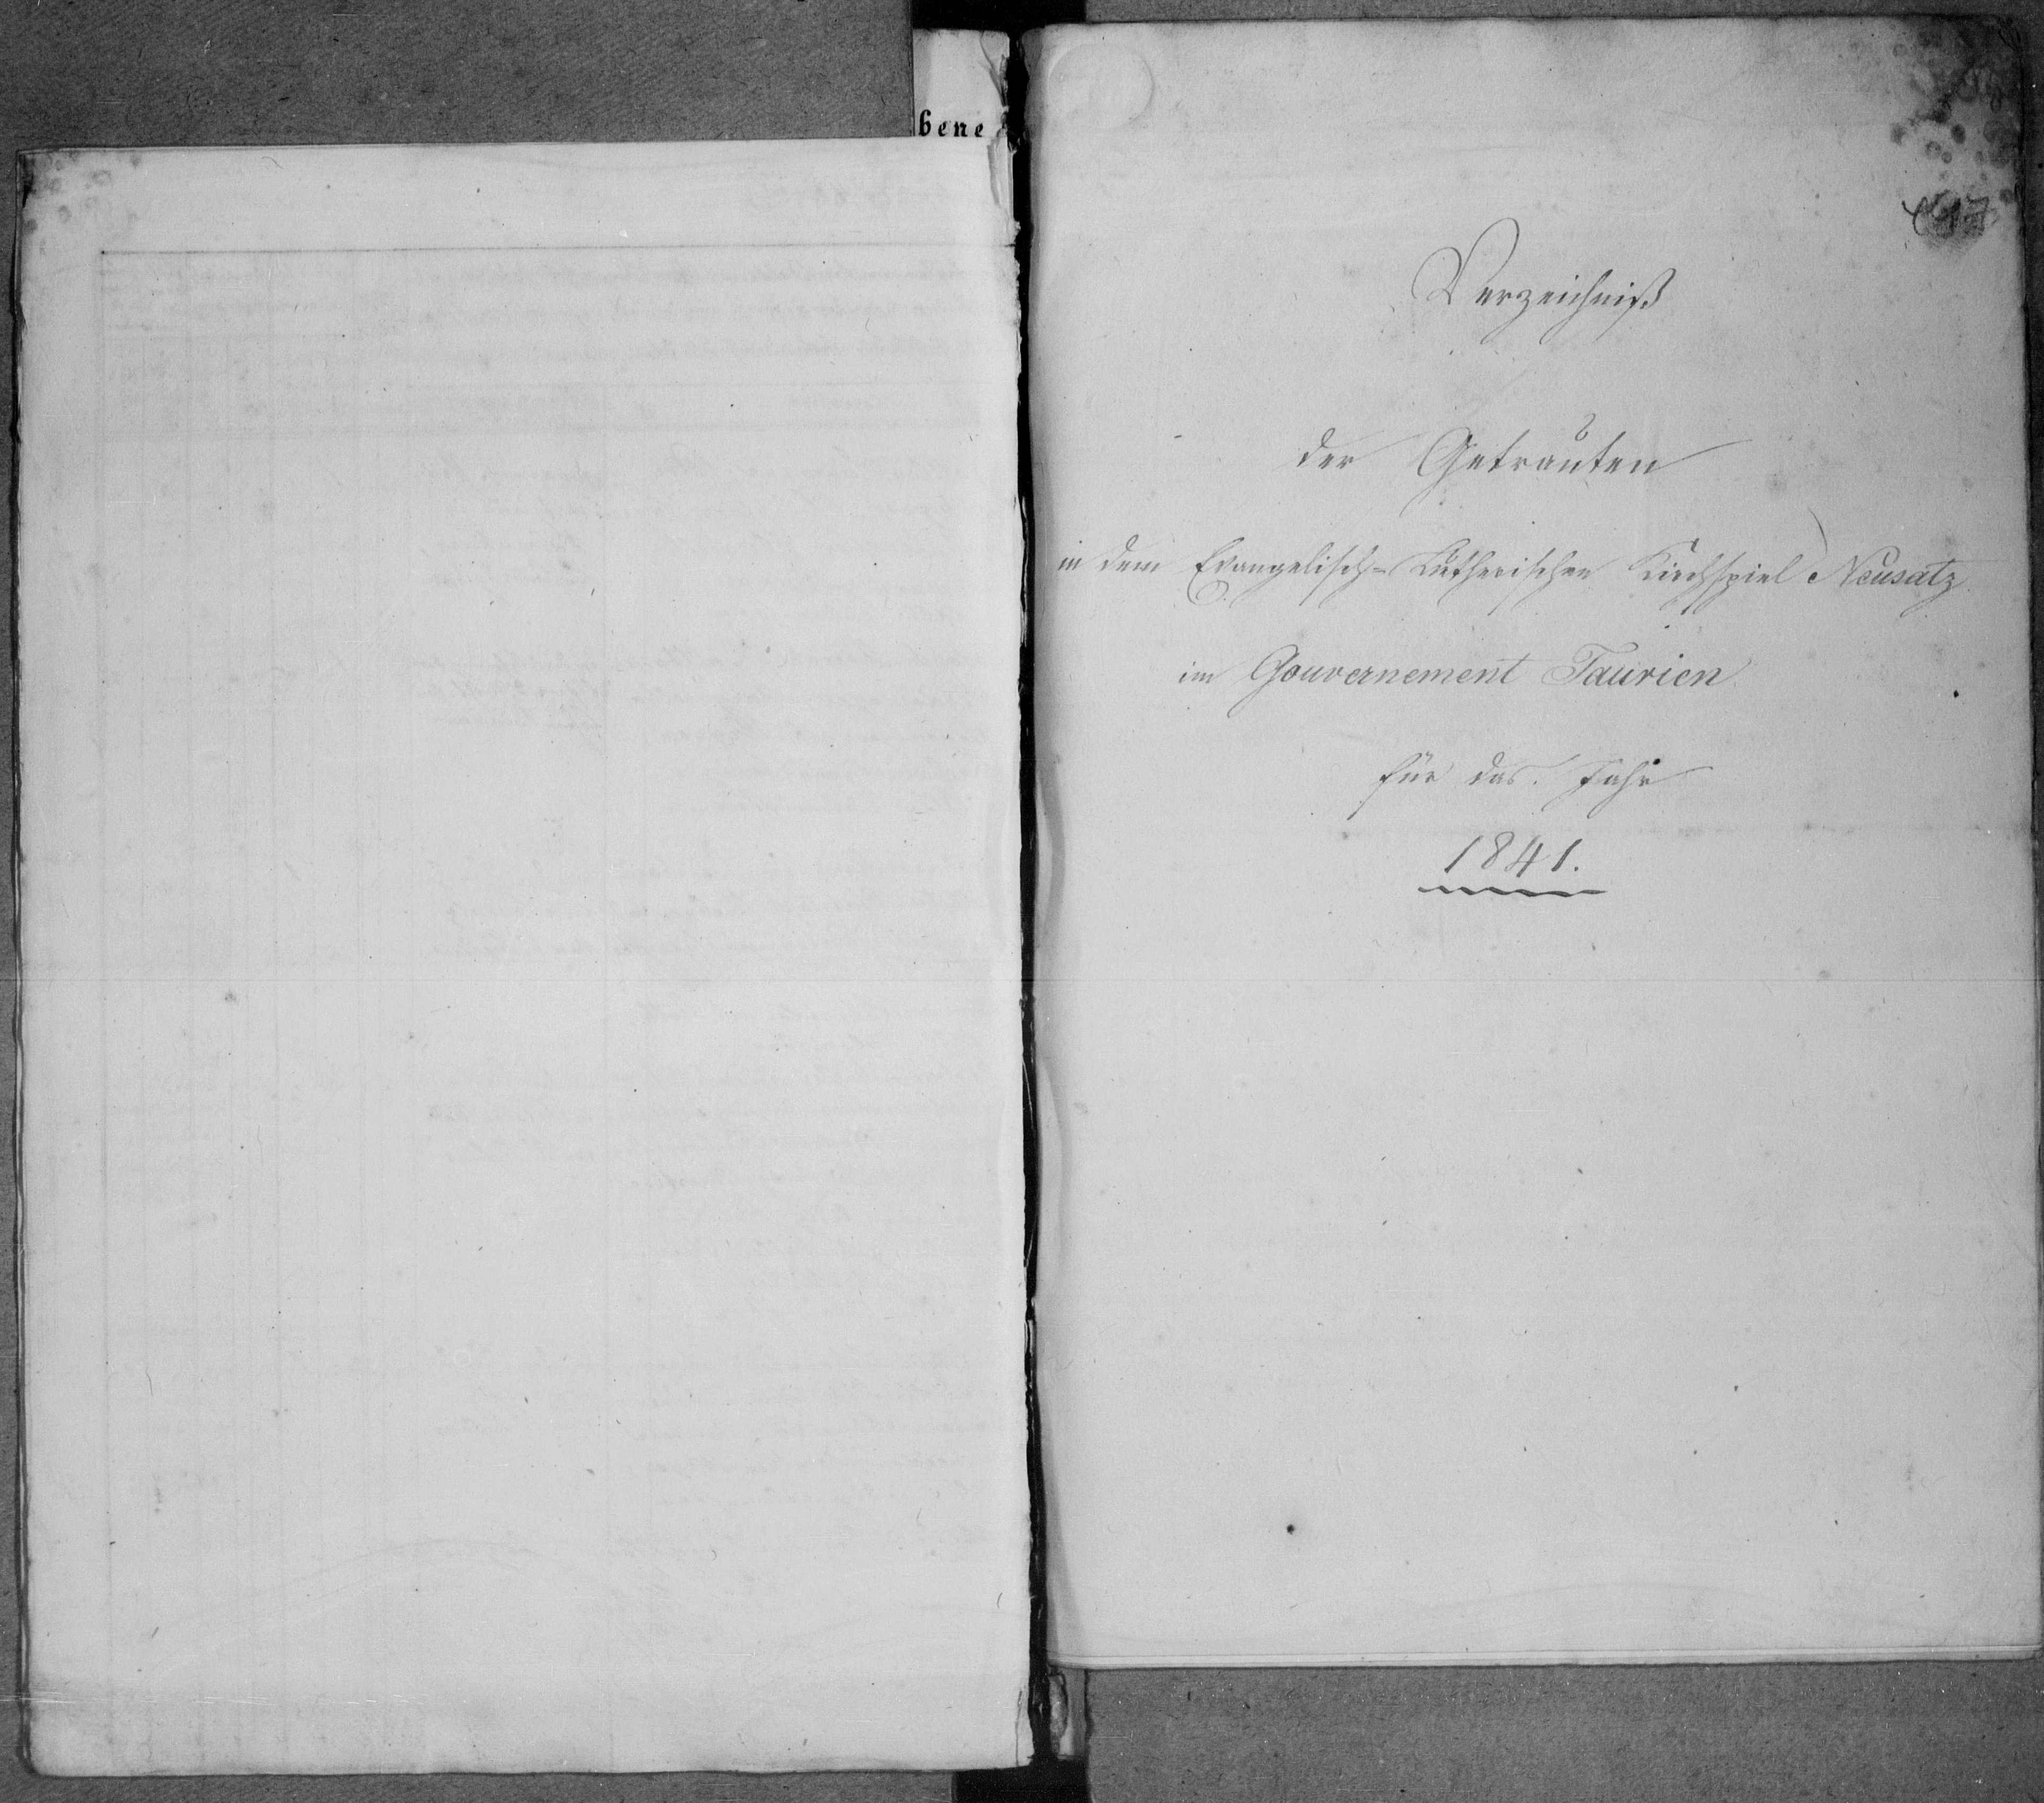 bene
Verzeichniß
der Getrauten
in dem Evangelisch-Lutherischen Kirchspiel Neusatz
im Gouvernement Taurien
für das Jahr
1841.